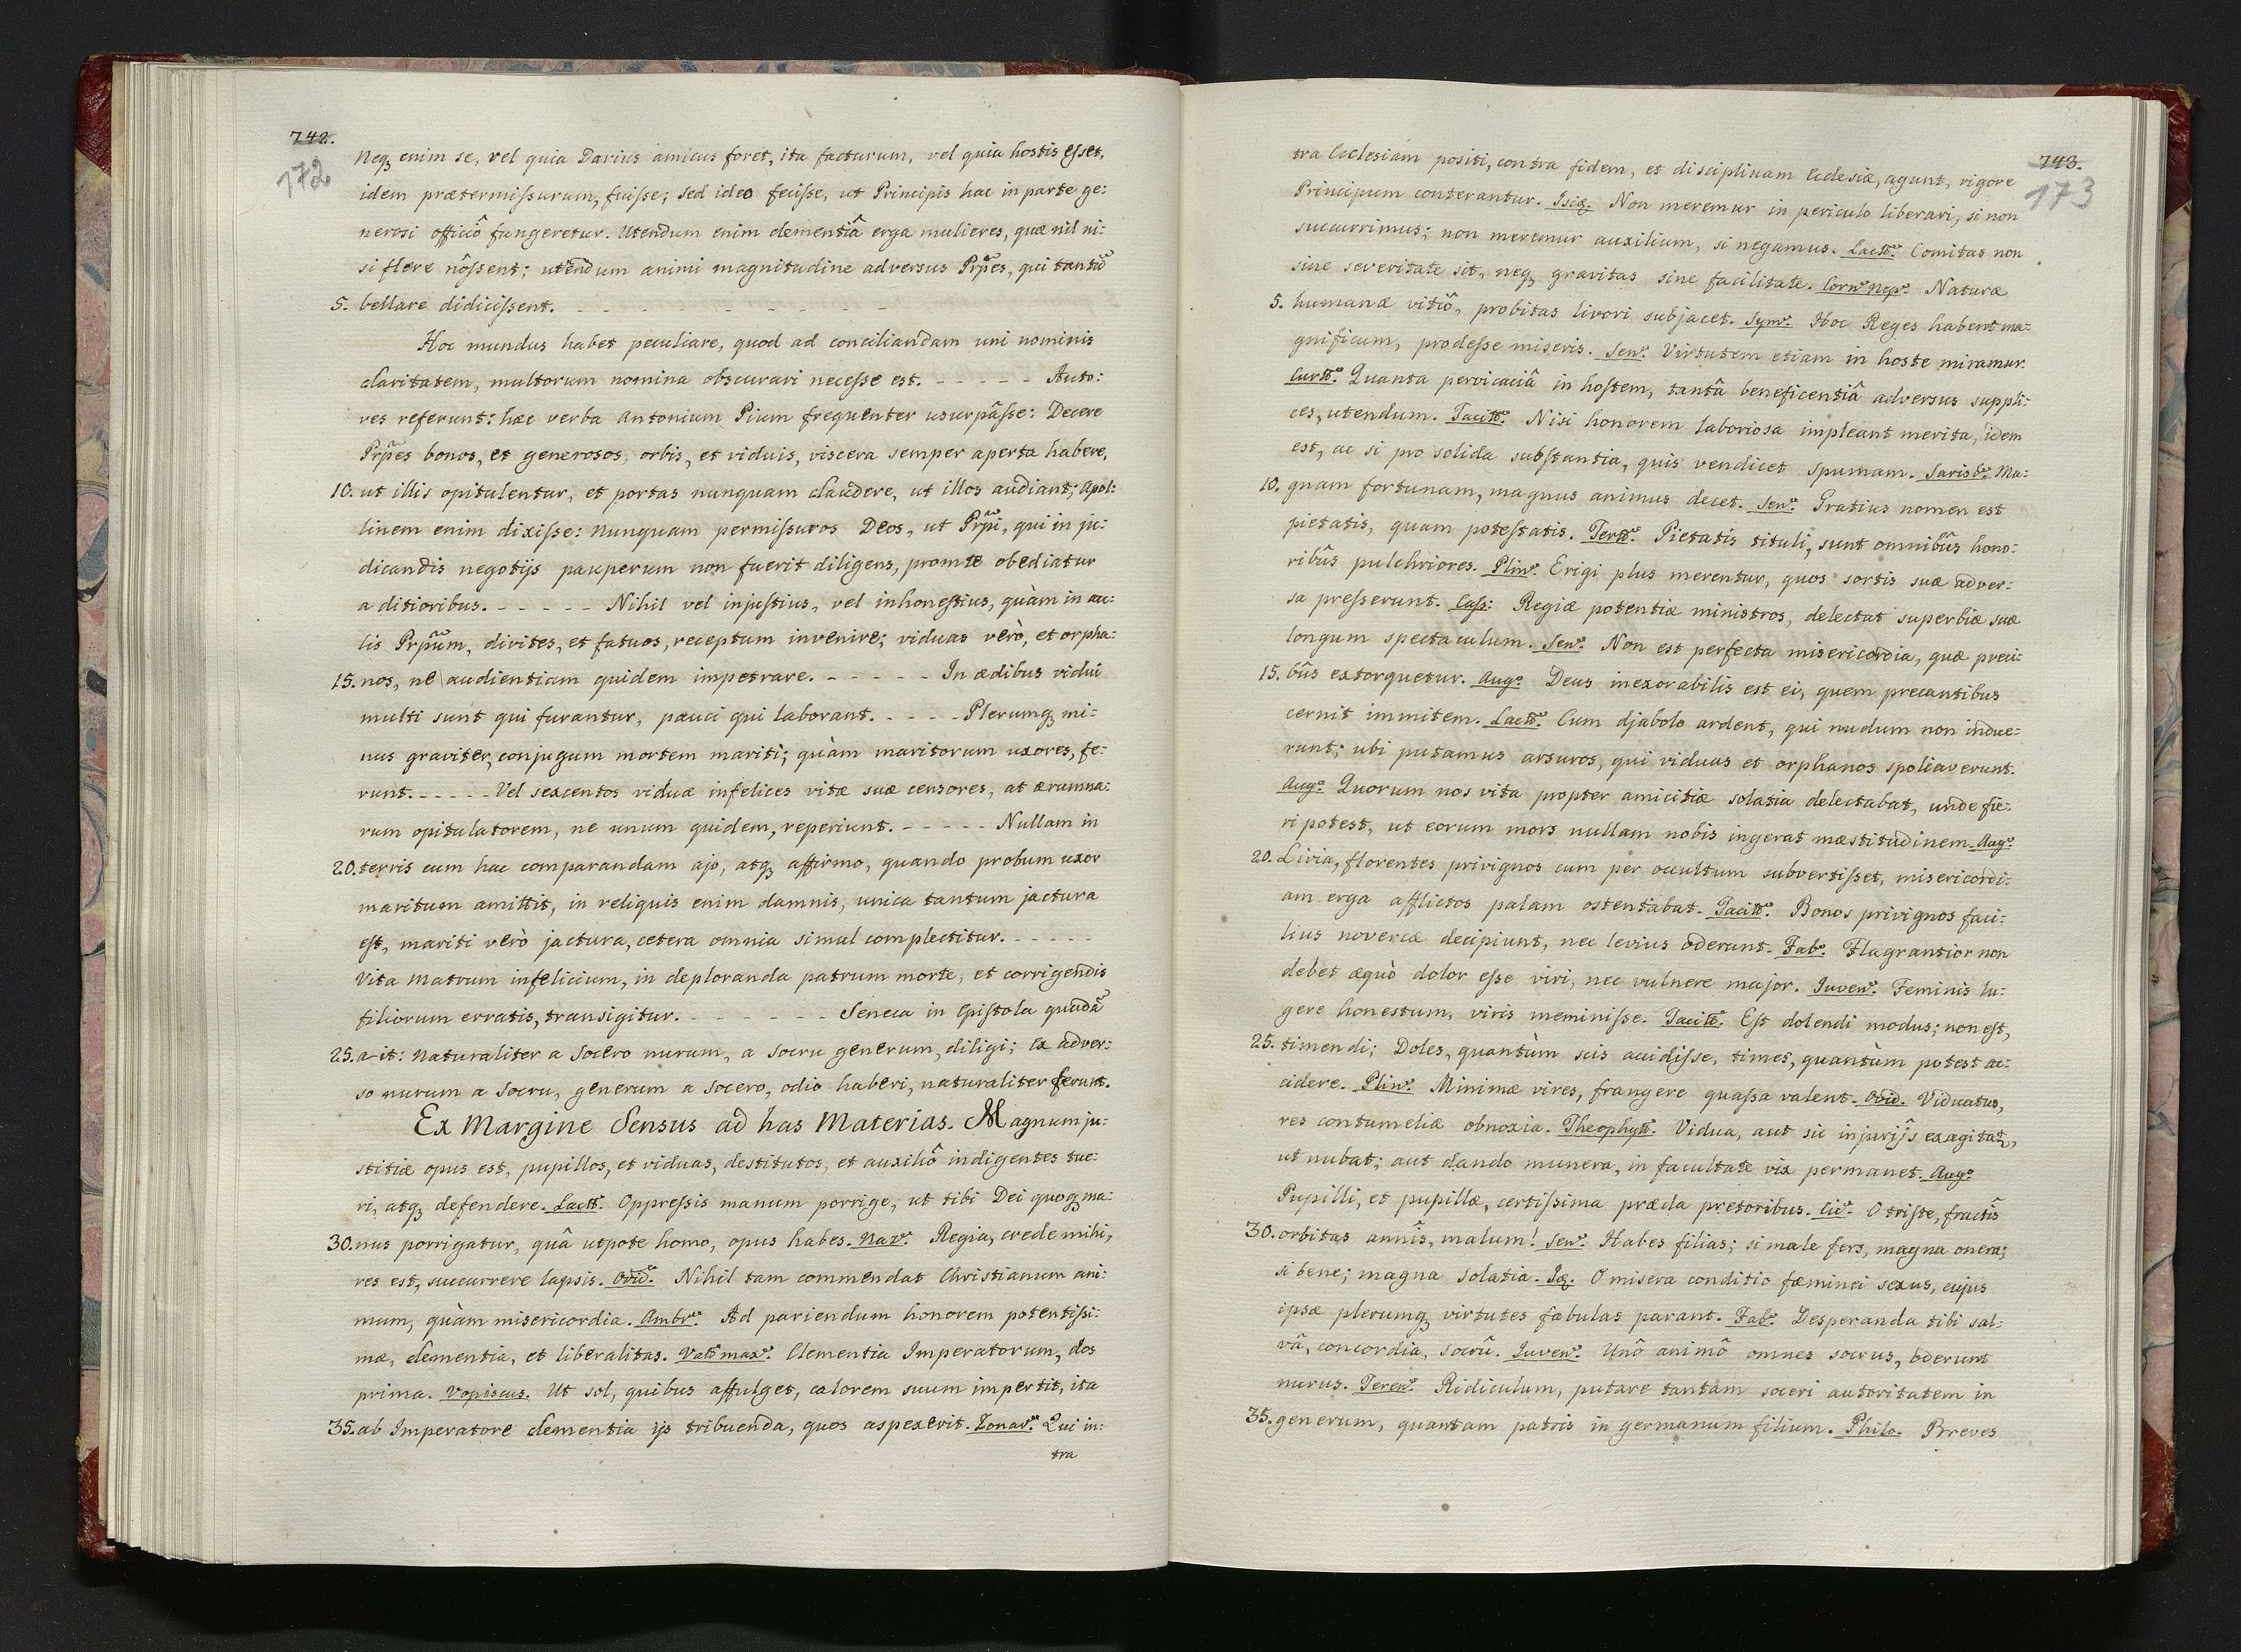 742.
172
Neq; enim se, vel quia Darius amicus foret, ita facturum, vel quia hostis esset,
idem prætermissurum, fuisse; sed ideo fecisse, ut Principis hac in parte ge:
nerosi officiô fungeretur. Utendum enim clementiâ erga mulieres, quæ nil ni:
si flere nôssent; utendum animi magnitudine adversus Prpes, qui tantū
5. bellare didicissent. - - - - - - - - -
Hoc mundus habet peculiare, quod ad conciliandam uni nominis
claritatem, multorum nomina obscurari necesse est. - - - - - Auto:
res referunt: hæc verba Antonium Pium frequenter usurpâsse: Decere
Prpes bonos, et generosos, orbis, et viduis, viscera semper aperta habere,
10. ut illis opitulentur, et portas nunquam claudere, ut illos audiant; Apol:
linem enim dixisse: Nunquam permissuros Deos, ut Prpi, qui in ju:
dicandis negotijs pauperum non fuerit diligens, promte obediatur
a ditioribus. - - - - - Nihil vel injustius, vel inhonestius, quàm in au:
lis Prpum, divites, et fatuos, receptum invenire; viduas verò, et orpha:
15. nos, ne audientiam quidem impetrare. - - - - - In ædibus vidui
multi sunt qui furantur, pauci qui laborant. - - - - Plerumq; mi:
nus graviter, conjugum mortem mariti; quàm maritorum uxores, fe:
runt. - - - - - Vel sexcentos viduæ infelices vitæ suæ censores, at ærumna:
rum opitulatorem, ne unum quidem, reperiunt. - - - - - Nullam in
20. terris cum hac comparandam ajo, atq; affirmo, quando probum uxor
maritum amittit, in reliquis enim damnis, unica tantum jactura
est, mariti verò jactura, cetera omnia simul complectitur. - - - - -
Vita Matrum infelicium, in deploranda patrum morte, et corrigendis
filiorum erratis, transigitur. - - - - - - - Seneca in Epistola quadā
25. a it: Naturaliter a Socero nurum, a Socru generum, diligi; Ex adver:
so nurum a Socru, generum a Socero, odio haberi, naturaliter ferunt.
Ex Margine Sensus ad has Materias. Magnum ju:
stitiæ opus est, pupillos, et viduas, destitutos, et auxiliô indigentes tue:
ri, atq; defendere. Lactt. Oppressis manum porrige, ut tibi Dei quoq; ma:
30. nus porrigatur, quâ utpote homo, opus habes. Naz. Regia, crede mihi,
res est, succurrere lapsis. Ovid. Nihil tam commendat Christianum ani:
mum, quàm misericordia. Ambr. Ad pariendum honorem potentissi:
mæ, clementia, et liberalitas. Vall max. Clementia Imperatorum, dos
prima. Vopiscus. Ut sol, quibus affulget, calorem suum impertit, ita
35. ab Imperatore clementia ijs tribuenda, quos aspexerit. Zonar. Qui in:
tra
743.
173
tra Ecclesiam positi, contra fidem, et disciplinam Ecclesiæ, agunt, rigore
Principum conterantur. Non meremur in periculo liberari, si non
succurrimus; non meremur auxilium, si negamus. Lactt. Comitas non
sine severitate sit, neq; gravitas sine facilitate. Corn. Nep. Naturæ
5. humanæ vitiô, probitas livori subjacet. Sym. Hoc Reges habent ma:
gnificum, prodesse miseris. Sen. Virtutem etiam in hoste miramur.
Curtt. Quanta pervicaciâ in hostem, tantâ beneficentiâ adversus suppli:
ces, utendum. Tacitt. Nisi honorem laboriosa impleant merita, idem
est, ac si pro solida substantia, quis vendicet spumam. Sarisb. Ma:
10. gnam fortunam, magnus animus decet. Sen. Gratius nomen est
pietatis, quam potestatis. Tertt. Pietatis tituli, sunt omnibûs hono:
ribûs pulchriores. Plin. Erigi plus merentur, quos sortis suæ adver:
sa presserunt. Cass: Regiæ potentiæ ministros, delectat superbiæ suæ
longum spectaculum. Sen. Non est perfecta misericordia, quæ preci:
15. bûs extorquetur. Aug. Deus inexorabilis est ei, quem precantibus
cernit immitem. Lactt. Cum djabolo ardent, qui nudum non indue:
runt; ubi putamus arsuros, qui viduas et orphanos spoliaverunt.
Aug. Quorum nos vita propter amicitiæ solatia delectabat, unde fie:
ri potest, ut eorum mors nullam nobis ingerat mæstitudinem. Aug.
20. Livia, florentes privignos cum per occultum subvertisset, misericordi:
am erga afflictos palam ostentabat. Tacitt. Bonos privignos faci:
lius novercæ decipiunt, nec levius oderunt. Fab. Flagrantior non
debet æquò dolor esse viri, nec vulnere major. Iuven. Feminis lu:
gere honestum, viris meminisse. Tacitt. Est dolendi modus; non est,
25. timendi; Doles, quantùm scis accidisse, times, quantùm potest ac:
cidere. Plin. Minimæ vires, frangere quassa valent. Ovid. Viduatus,
res contumeliæ obnoxia. Theophyll. Vidua, aut sic injurijs exagitat,
ut nubat; aut dando munera, in facultate vix permanet. Aug.
Pupilli, et pupillæ, certissima præda pretoribus. Cic. O triste, fractîs
30. orbitas annîs, malum! Sen. Habes filias; si male fers, magna onera;
si bene; magna solatia. Iq. O misera conditio fæminei sexus, cujus
ipsæ plerumq; virtutes fabulas parant. Fab. Desperanda tibi sal:
vâ, concordia, socrû. Iuven. Unô animô omnes socrus, oderunt
nurus. Teren. Ridiculum, putare tantam soceri autoritatem in
35. generum, quantam patris in germanum filium. Philo. Breves